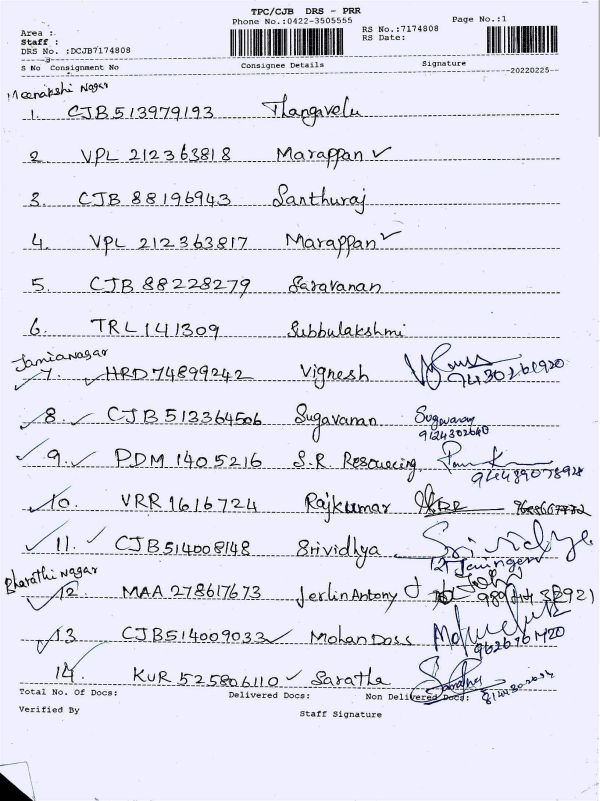 TPC/CJB DRS - PRR
Phone No.:0422-3505555
Page No.:1
Area :
RS No.:7174808
Staff :
RS Date:
DRS No. :DCJB7174808
S No Consignment No Consignee Details Signature
20220225
Meenakshi Nagar
1. CJB513979193 Thangavelu
2. VPL 212363818 Marappan ✓
3. CJB 88196943 Santhuraj
4. VPL 212363817 Marappan ✓
5. CJB 88228279 Saravanan
6. TRL141309 Subbulakshmi
Jamianagar
✓ 7. ✓ HRD74899242 Vignesh
✓ 8 ✓ CJB 513364506 Sugavanan Sugavanan
✓ 9. ✓ PDM 1405216 S.R. Resourcing,
✓ 10. VRR 1616724 Rajkumar
✓ 11. ✓ CJB514008148 Srividhya Srividhya
Bharathi Nagar
✓ 12 MAA 278617673 Jerlin Antony
✓ 13 CJB514009033 ✓ Mohan Doss
14. KUR 525806110 ✓ Saratha
Total No. Of Docs: Delivered Docs: Non Delivered Docs:
Verified By
Staff Signature